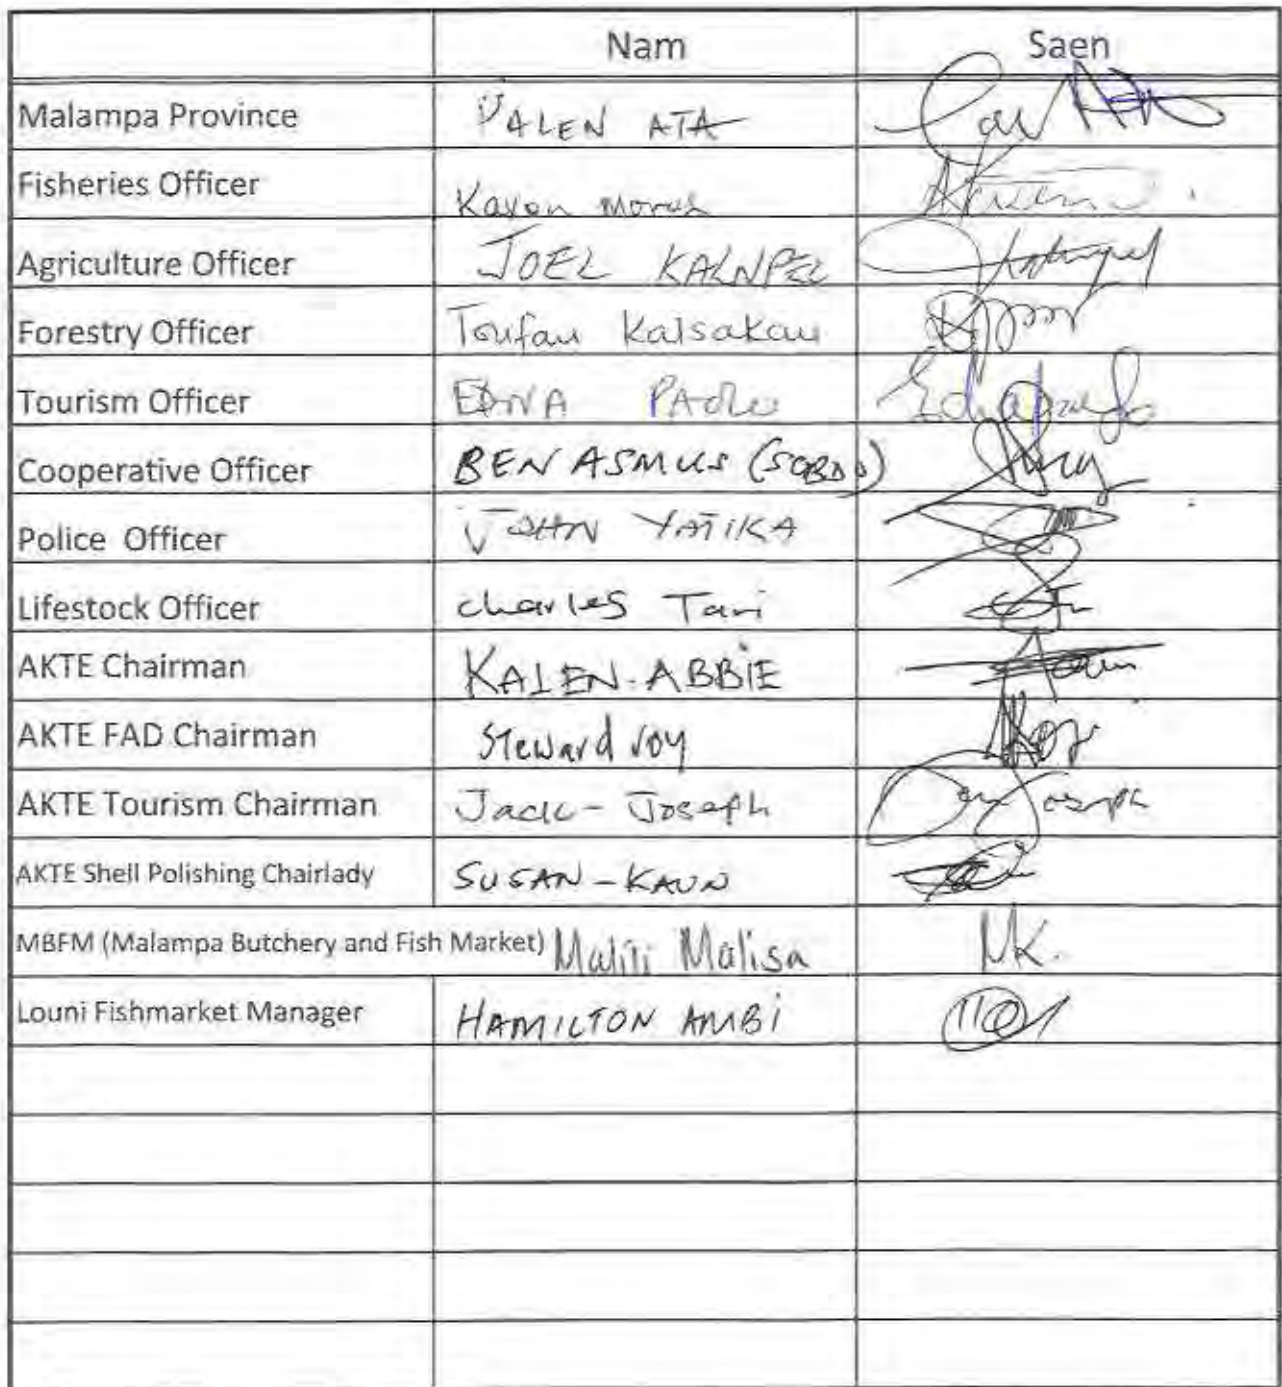 Nam Saen
Malampa Province PALEN ATA
Fisheries Officer Kayon Morah
Agriculture Officer JOEL KALNPEL
Forestry Officer Toufau Kalsakau
Tourism Officer EDNA PAOLO
Cooperative Officer BEN ASMUS (SCBDO)
Police Officer JOHN YATIKA
Lifestock Officer charles Tari
AKTE Chairman KALEN-ABBIE
AKTE FAD Chairman Steward roy
AKTE Tourism Chairman Jack-Joseph
AKTE Shell Polishing Chairlady SUSAN-KAUN
MBFM (Malampa Butchery and Fish Market) Maliti Malisa MK.
Louni Fishmarket Manager HAMILTON AMBI